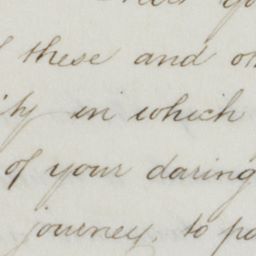 these and
in which
of your daring
journey, to